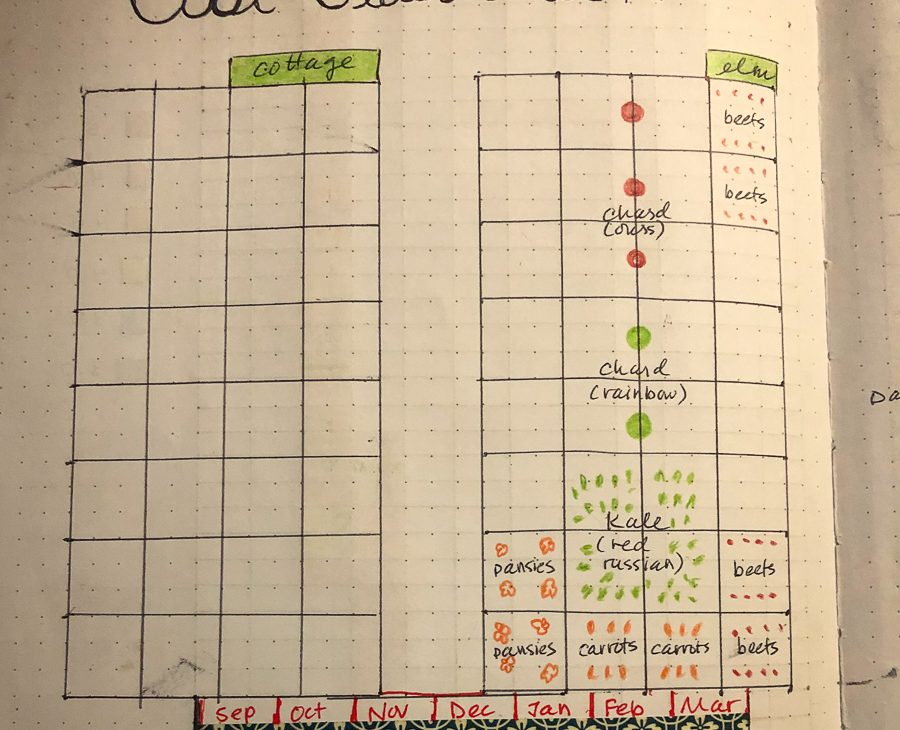 cottage
elm
beets
beets
chard
chard
(rainbow)
Kale
(red
russian)
pansies
beets
pansies
carrots
carrots
beets
Sep
Oct
Nov
Dec
Jan
Feb
Mar